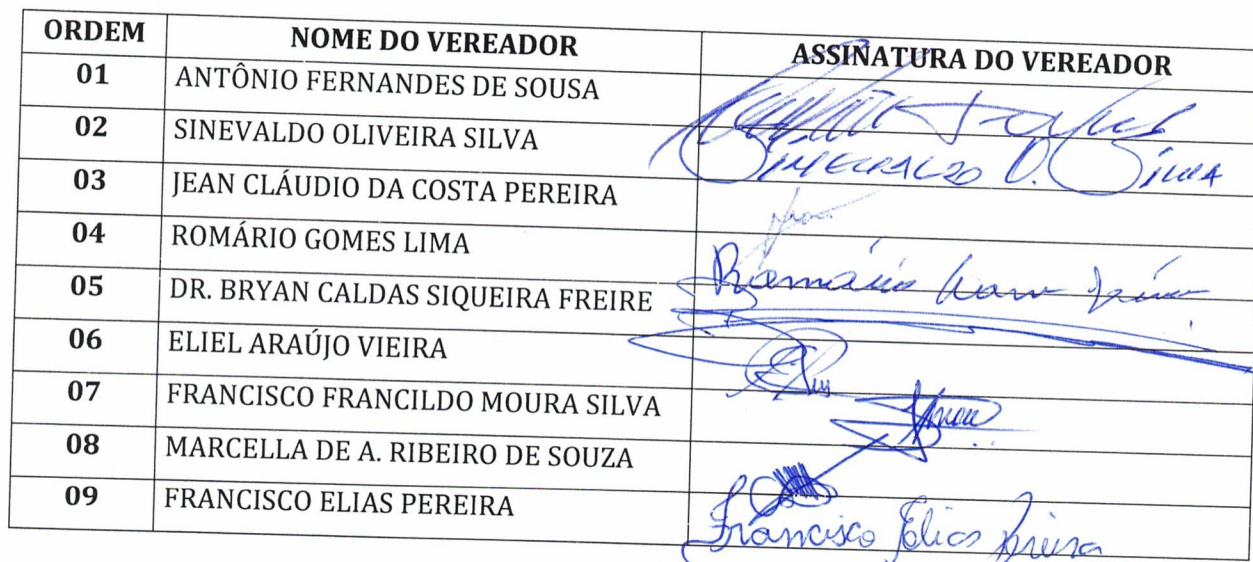 ORDEM NOME DO VEREADOR ASSINATURA DO VEREADOR
01 ANTÔNIO FERNANDES DE SOUSA
02 SINEVALDO OLIVEIRA SILVA
03 JEAN CLÁUDIO DA COSTA PEREIRA
04 ROMÁRIO GOMES LIMA Romário
05 DR. BRYAN CALDAS SIQUEIRA FREIRE
06 ELIEL ARAÚJO VIEIRA
07 FRANCISCO FRANCILDO MOURA SILVA
08 MARCELLA DE A. RIBEIRO DE SOUZA
09 FRANCISCO ELIAS PEREIRA Francisco Elias